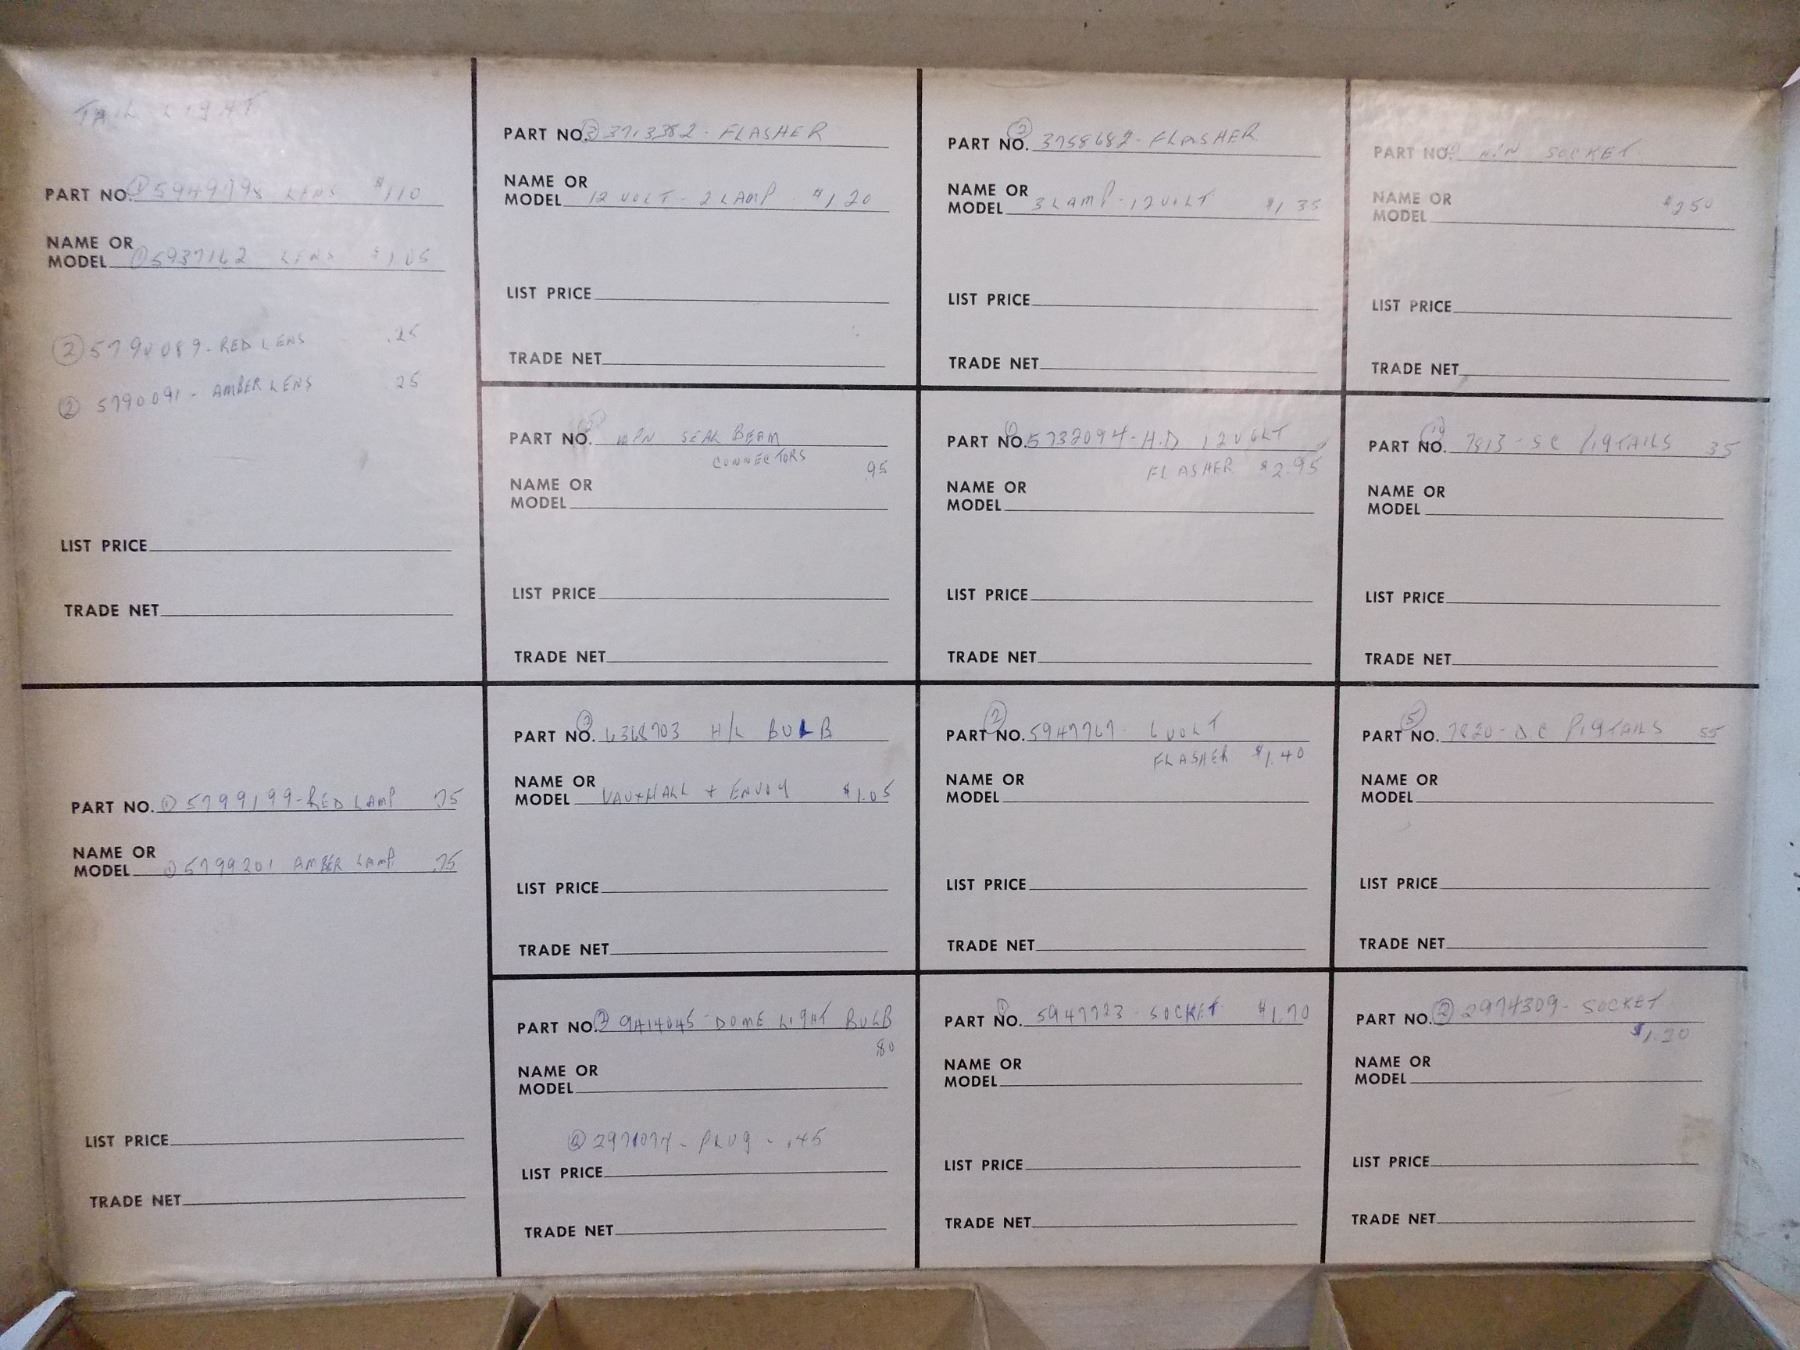 TAIL LIGHT
PART NO. ① 5949798 LENS $1.10
NAME OR
MODEL ① 5937162 LENS $1.05
② 5790089 - RED LENS .25
② 5790091 - AMBER LENS 25
LIST PRICE
TRADE NET
PART NO. ③ 3713382 - FLASHER
NAME OR
MODEL 12 VOLT - 2 LAMP $1.20
LIST PRICE
TRADE NET
PART NO. ② 3758682 - FLASHER
NAME OR
MODEL 3 LAMP - 12 VOLT $1.35
LIST PRICE
TRADE NET
PART NO. SOCKET
NAME OR
MODEL $2.50
LIST PRICE
TRADE NET
PART NO. SEAL BEAM
CONNECTORS 95
NAME OR
MODEL
LIST PRICE
TRADE NET
PART NO. 5732094 - H.D 12 VOLT
FLASHER $2.95
NAME OR
MODEL
LIST PRICE
TRADE NET
PART NO. 7813 - SC PIGTAILS 35
NAME OR
MODEL
LIST PRICE
TRADE NET
PART NO. ① 5799199 - RED LAMP .75
NAME OR
MODEL ① 5799201 AMBER LAMP .75
LIST PRICE
TRADE NET
PART NO. 6368703 H/L BULB
NAME OR
MODEL VAUXHALL + ENVOY $1.05
LIST PRICE
TRADE NET
PART NO. ② 5947767 - 6 VOLT
FLASHER $1.40
NAME OR
MODEL
LIST PRICE
TRADE NET
PART NO. ⑤ 7820 - D.C PIGTAILS 55
NAME OR
MODEL
LIST PRICE
TRADE NET
PART NO. 9414045 - DOME LIGHT BULB
80
NAME OR
MODEL
② 2971074 - PLUG - .45
LIST PRICE
TRADE NET
PART NO. ① 5947723 - SOCKET $1.70
NAME OR
MODEL
LIST PRICE
TRADE NET
PART NO. ② 2974309 - SOCKET
$1.20
NAME OR
MODEL
LIST PRICE
TRADE NET